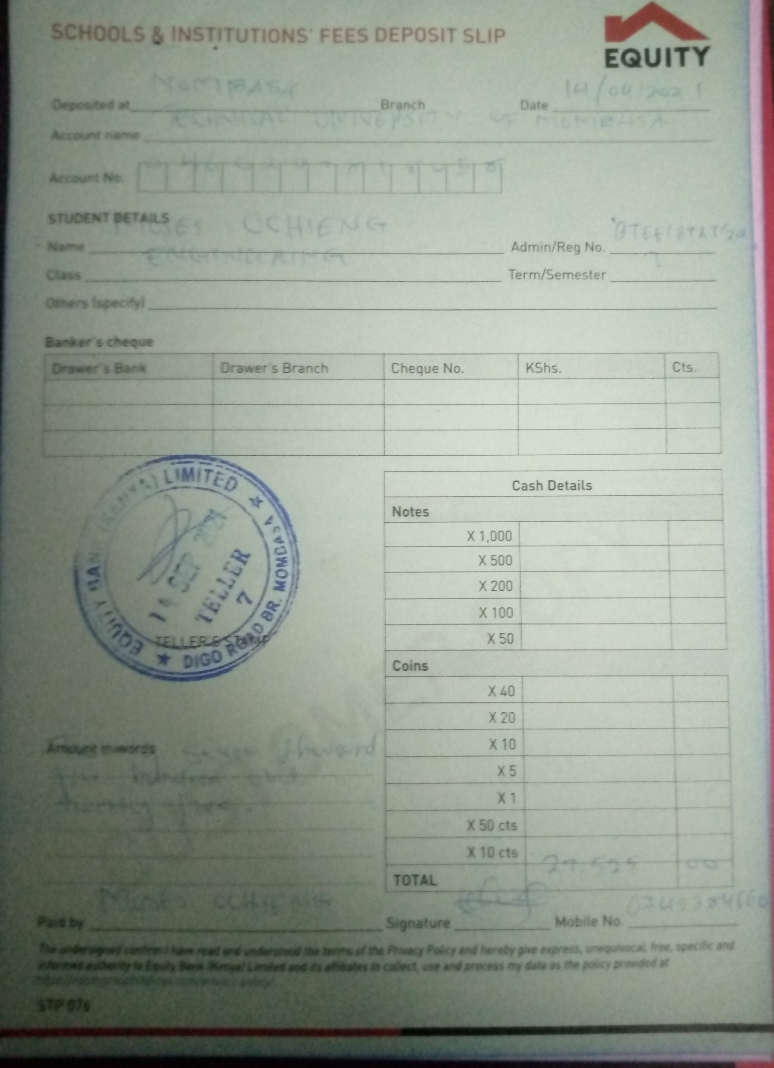 SCHOOLS & INSTITUTIONS' FEES DEPOSIT SLIP
EQUITY
Deposited at MOMBASA Branch Date 14/09/2021
Account name TECHNICAL UNIVERSITY OF MOMBASA
Account No.
STUDENT DETAILS
Name MOSES OCHIENG Admin/Reg No.
Class ENGINEERING Term/Semester
Others (specify)
Banker's cheque
Drawer's Bank Drawer's Branch Cheque No. KShs. Cts.
Cash Details
Notes
X 1,000
X 500
X 200
X 100
X 50
EQUITY BANK (KENYA) LIMITED
14 SEP 2021
TELLER
7
DIGO ROAD BR. MOMBASA
TELLER'S STAMP
Coins
X 40
X 20
X 10
X 5
X 1
X 50 cts
X 10 cts
TOTAL 00
Amount in words Seven thousand
five hundred and
twenty five
Paid by MOSES OCHIENG Signature Mobile No.
The undersigned confirms I have read and understood the terms of the Privacy Policy and hereby give express, unequivocal, free, specific and
informed authority to Equity Bank (Kenya) Limited and its affiliates to collect, use and process my data as the policy provided at
STP 076